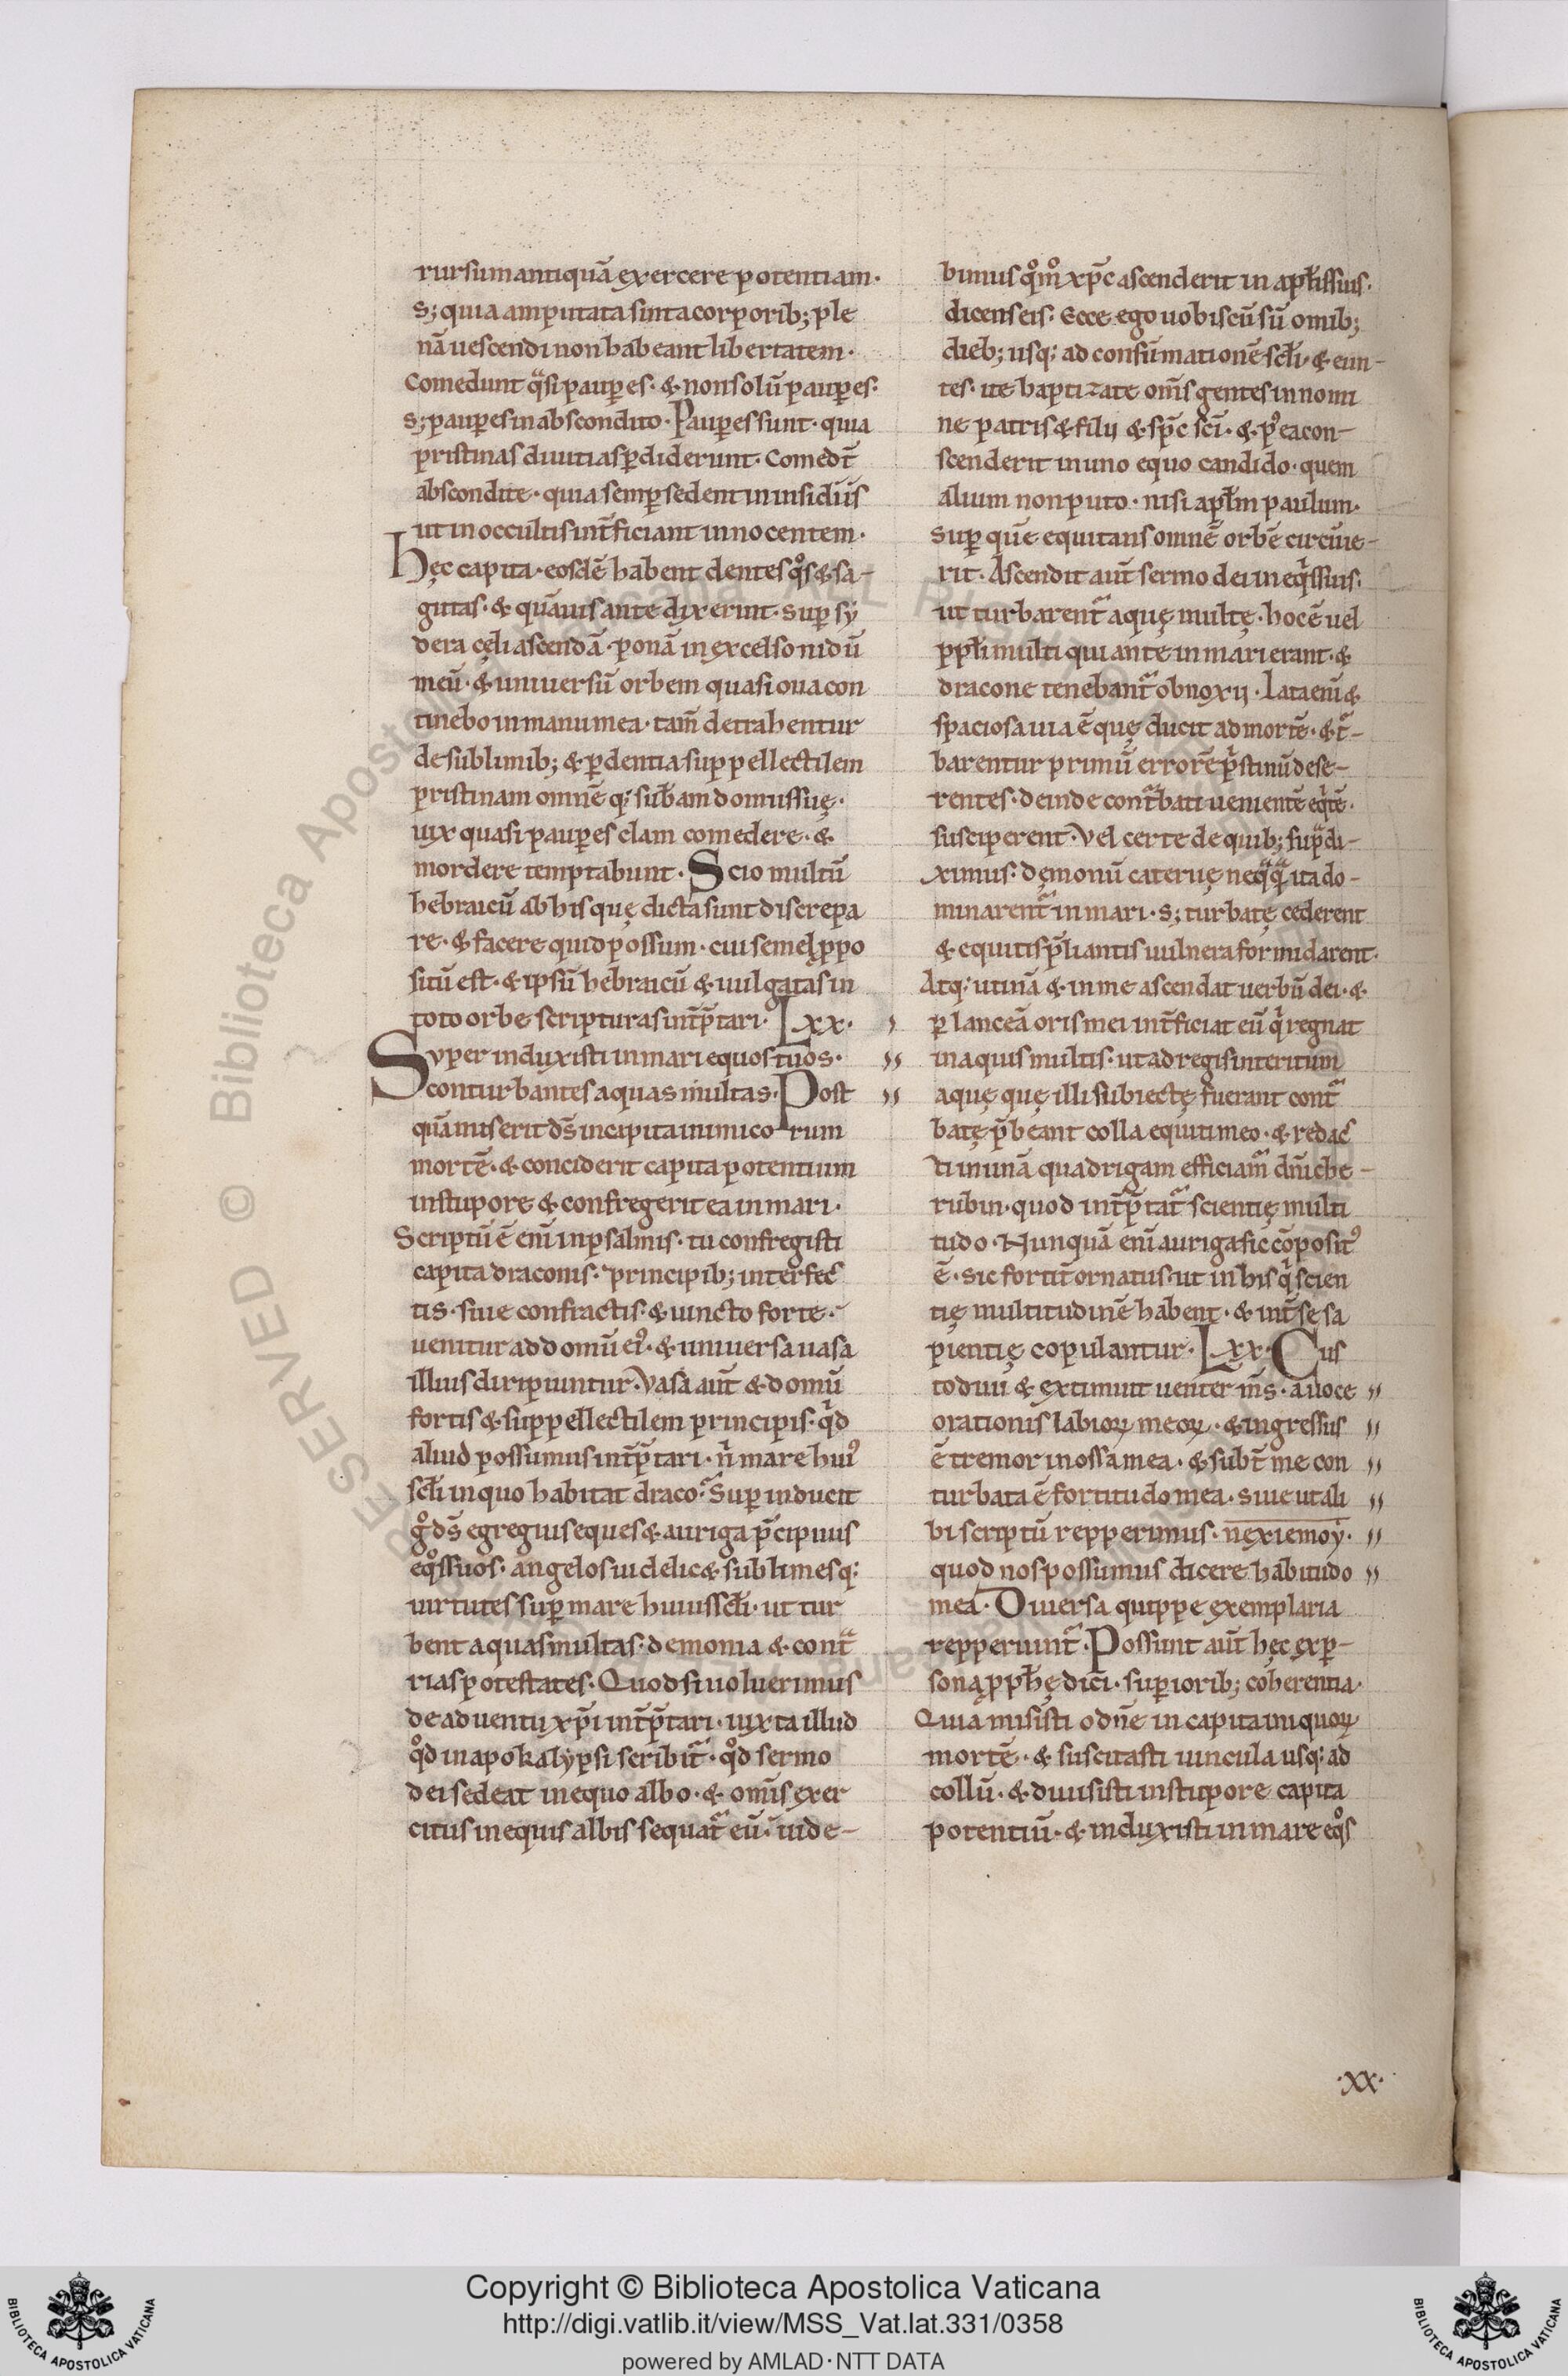 rursum antiquā exercere potentiam.
s; quia amputata sint a corporib; ple
nā uescendi non habeant libertatem.
Comedunt q̈si pauꝑes. & non solū pauꝑes.
s; pauꝑes in abscondito. Pauꝑes sunt. quia
pristinas diuitias ꝑdiderunt. Comedt̄
abscondite. quia semꝑ sedent in insidiis
ut in occultis int̄ficiant innocentem.
hęc capita. eosdē habent dentes q̊s & sa-
gittas. & quāuis ante dixerint. suꝑ sy
dera cęli ascendā. ponā in excelso nidū
meū. & uniuersū orbem quasi oua con
tinebo in manu mea. tam̄ detrahentur
de sublimib; & ꝑdentia suppellectilem
pristinam omnē q; subam domus suę.
uix quasi pauꝑes clam comedere. &
mordere temptabunt. Scio multū
hebraicū ab his quę dicta sunt discrepa
re. & facere quid possum. cui semel ꝓpo
sitū est. & ipsū hebraicū & uulgatas in
toto orbe scripturas int̄p̄tari. Lxx.
Super induxisti in mari equos tuos.
conturbantes aquas multas. Post
quā miserit ds̄ in capita inimicorum
mortē. & conciderit capita potentium
in stupore & confregerit ea in mari.
Scriptū ē enī in psalmis. tu confregisti
capita draconis. principib; interfec
tis. siue confractis. & uincto forte.
uenitur ad domū ei⁹. & uniuersa uasa
illius diripiuntur. Vasa aut̄ & domū
fortis & suppellectilem principis. qd
aliud possumus int̄p̄tari. n̄ mare hui⁹
scl̄i in quo habitat draco. Suꝑ inducit
g̊ ds̄ egregius eques & auriga p̄cipuus
eq̊s suos. angelos uidelic& sublimesq;
uirtutes suꝑ mare huius scl̄i. ut tur
bent aquas multas. demonia & cont̄
rias potestates. Quod si uoluerimus
de aduentu xp̄i int̄p̄tari. iuxta illud
q̊d in apokalypsi scribit̄. q̊d sermo
dei sedeat in equo albo. & omīs exer
citus in equis albis sequat̄ eū. uide-
bimus q̊m̊ xp̄c ascenderit in apl̄is suis.
dicens eis. Ecce ego uobiscū sū omīb;
dieb; usq; ad consūmationē scl̄i. & eun-
tes. ite baptizate om̄s gentes in nomi
ne patris & filii & sp̄c scī. & p⁹ea con-
scenderit in uno equo candido. quem
alium non puto. nisi apl̄m paulum.
suꝑ quē equitans omnē orbē circuie-
rit. Ascendit aut̄ sermo dei in eq̊s suis.
ut turbarent̄ aquę multę. hoc ē uel
ppl̄i multi qui ante in mari erant. &
dracone tenebant̄ obnoxii. Lata enī &
spaciosa uia ē quę ducit ad mortē. & t̄-
barentur primū errorē p̄stinū dese-
rentes. deinde cont̄bati uenientē eq̇tē.
susciperent. Vel certe de quib; sup̄ di-
ximus. dęmonū cateruę neq̈q̈ ita do-
minarent̄ in mari. s; turbatę cederent
& equitis p̄liantis uulnera formidarent.
Atq; utinā & in me ascendat uerbū dei. &
ꝑ lanceā oris mei int̄ficiat eū q̇ regnat
in aquis multis. ut ad regis interitum
aquę quę illi subiectę fuerant cont̄
batę p̄beant colla equiti meo. & redac
ti in unā quadrigam efficiam̄ dn̄i che-
rubin. quod int̄p̄tat̄ scientię multi
tudo. Nunquā enī auriga sic cōposit⁹
ē. sic fortit̄ ornatus. ut in his q̇ scien
tię multitudinē habent. & int̄ se sa
pientię copulantur. Lxx. Cus
todiui & extimuit uenter m̄s. a uoce
orationis labioꝝ meoꝝ. & ingressus
ē tremor in ossa mea. & subt̄ me con
turbata ē fortitudo mea. siue ut ali
bi scriptū repperimus. nexiemoy.
quod nos possumus dicere habitudo
mea. Diuersa quippe exemplaria
repperiunt̄. Possunt aut̄ hęc ex ꝑ-
sona ꝓph̄ę dici. suꝑiorib; coherentia.
Quia misisti o dn̄e in capita iniquoꝝ
mortē. & suscitasti uincula usq; ad
collū. & diuisisti in stupore capita
potentiū. & induxisti in mare eq̊s
.xx.
Copyright © Biblioteca Apostolica Vaticana
http://digi.vatlib.it/view/MSS_Vat.lat.331/0358
powered by AMLAD·NTT DATA